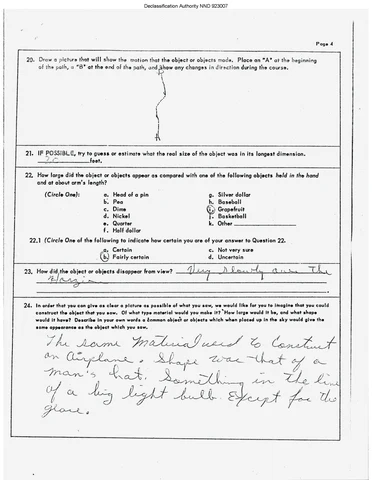 Declassification Authority NND 923007
Page 4
20. Draw a picture that will show the motion that the object or objects made. Place an "A" at the beginning
of the path, a "B" at the end of the path, and show any changes in direction during the course.
B
A
21. IF POSSIBLE, try to guess or estimate what the real size of the object was in its longest dimension.
30 feet.
22. How large did the object or objects appear as compared with one of the following objects held in the hand
and at about arm's length?
(Circle One): a. Head of a pin g. Silver dollar
b. Pea h. Baseball
c. Dime i. Grapefruit
d. Nickel j. Basketball
e. Quarter k. Other
f. Half dollar
22.1 (Circle One of the following to indicate how certain you are of your answer to Question 22.
a. Certain c. Not very sure
b. Fairly certain d. Uncertain
23. How did the object or objects disappear from view? Very slowly over The
24. In order that you can give as clear a picture as possible of what you saw, we would like for you to imagine that you could
construct the object that you saw. Of what type material would you make it? How large would it be, and what shape
would it have? Describe in your own words a common object or objects which when placed up in the sky would give the
same appearance as the object which you saw.
The same Material used to Construct
an Airplane. Shape was that of a
man's hat. Something in the line
of a big light bulb. Except for the
glare.